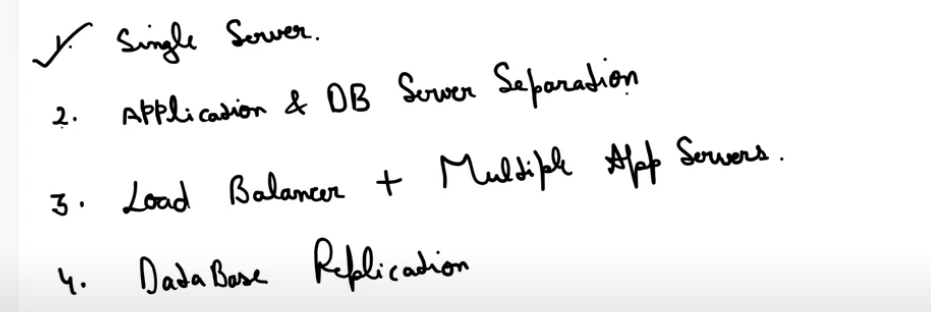 1. Single Server.
2. Application & DB Server Separation
3. Load Balancer + Multiple App Servers.
4. DataBase Replication